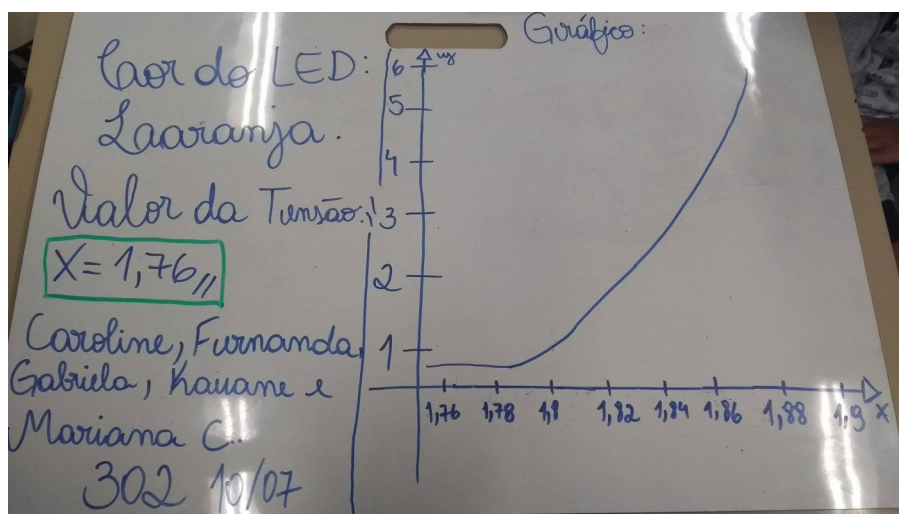 Cor do LED:
Laranja.
Valor da Tensão:
X = 1,76,,
Caroline, Fernanda,
Gabriela, Kauane e
Mariana C.
302 10/07
Gráfico:
y
6
5
4
3
2
1
1,76 1,78 1,8 1,82 1,84 1,86 1,88 1,9 X